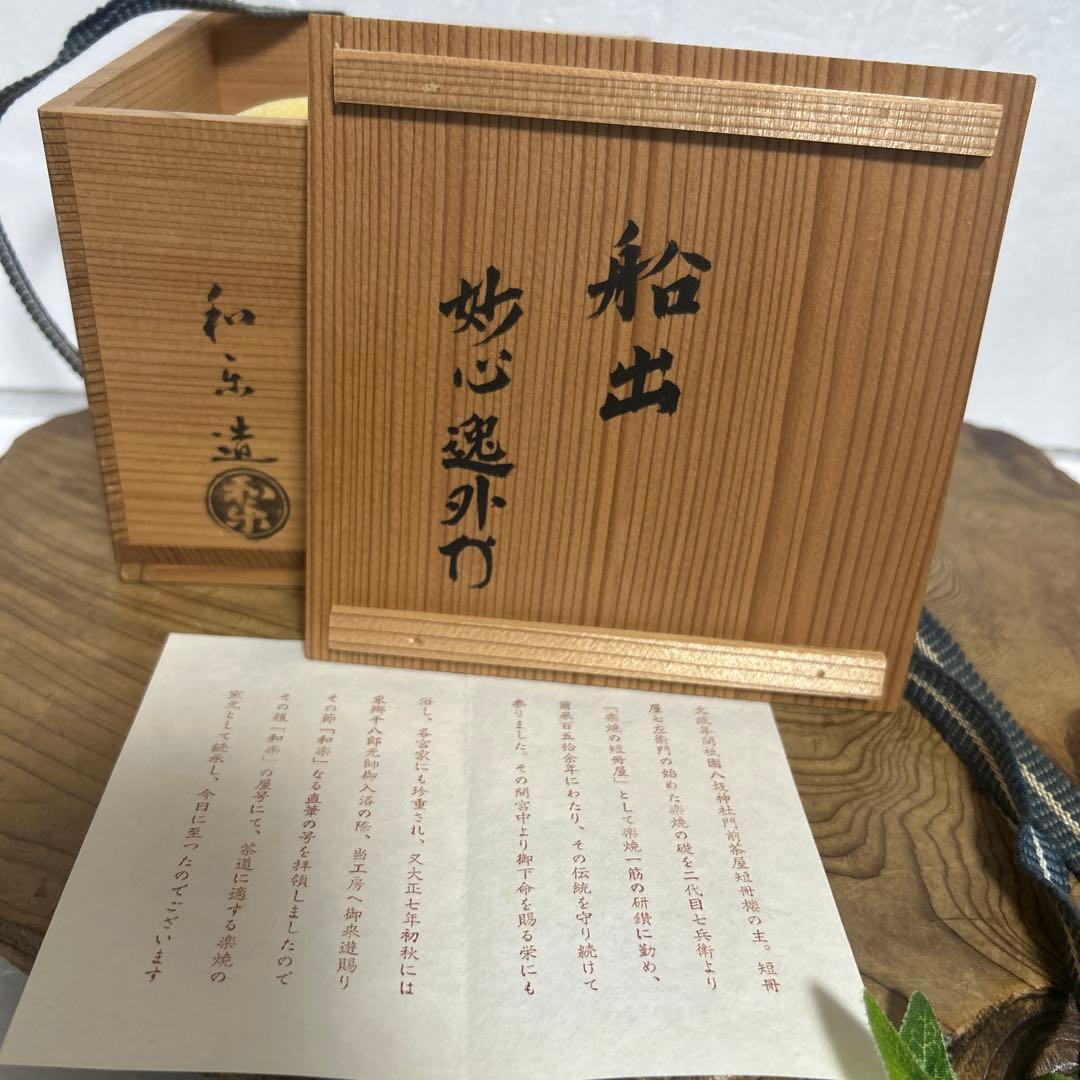 船出
妙心逸外
和楽造
和楽
文政年間祇園八坂神社門前茶屋短冊楼の主。短冊
屋七左衛門の始めた楽焼の礎を二代目七兵衛より
「楽焼の短冊屋」として楽焼一筋の研鑽に勤め、
爾来百五拾余年にわたり、その伝統を守り続けて
参りました。その間宮中より御下命を賜る栄にも
浴し、各宮家にも珍重され、又大正七年初秋には
東郷平八郎元帥御入洛の際、当工房へ御来遊賜り
その節「和楽」なる直筆の号を拝領しましたので
その後「和楽」の屋号にて、茶道に適する楽焼の
窯元として続承し、今日に至つたのでございます